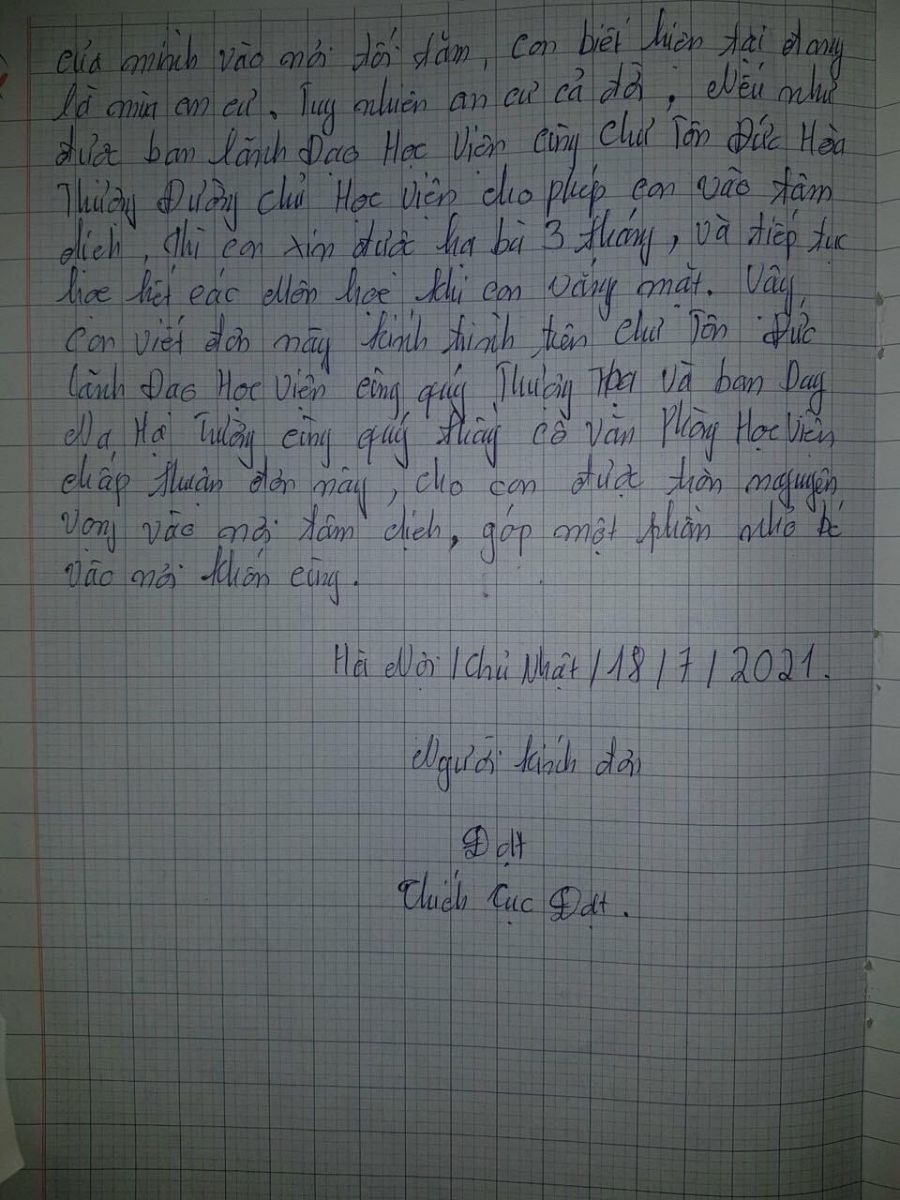 của mình vào nơi tối tăm, con biết hiện tại đang
là mùa an cư. Tuy nhiên an cư cả đời, Nếu như
được ban lãnh Đạo Học Viện cùng Chư Tôn Đức Hòa
Thượng Đường chủ Học Viện cho phép con vào tâm
dịch, thì con xin được hạ bù 3 tháng, và tiếp tục
học hết các Môn học khi con vắng mặt. Vậy
con viết đơn này kính trình trên Chư Tôn Đức
lãnh Đạo Học Viện cùng quý Thượng Tọa và ban Duy
Na, Hạ Trường cùng quý thầy cô Văn Phòng Học Viện
chấp thuận đơn này, cho con được tròn nguyện
vọng vào nơi tâm dịch, góp một phần nhỏ bé
vào nơi khốn cùng.
Hà Nội / Chủ Nhật / 18 / 7 / 2021.
Người kính đơn
Đạt
Thích Tục Đạt.